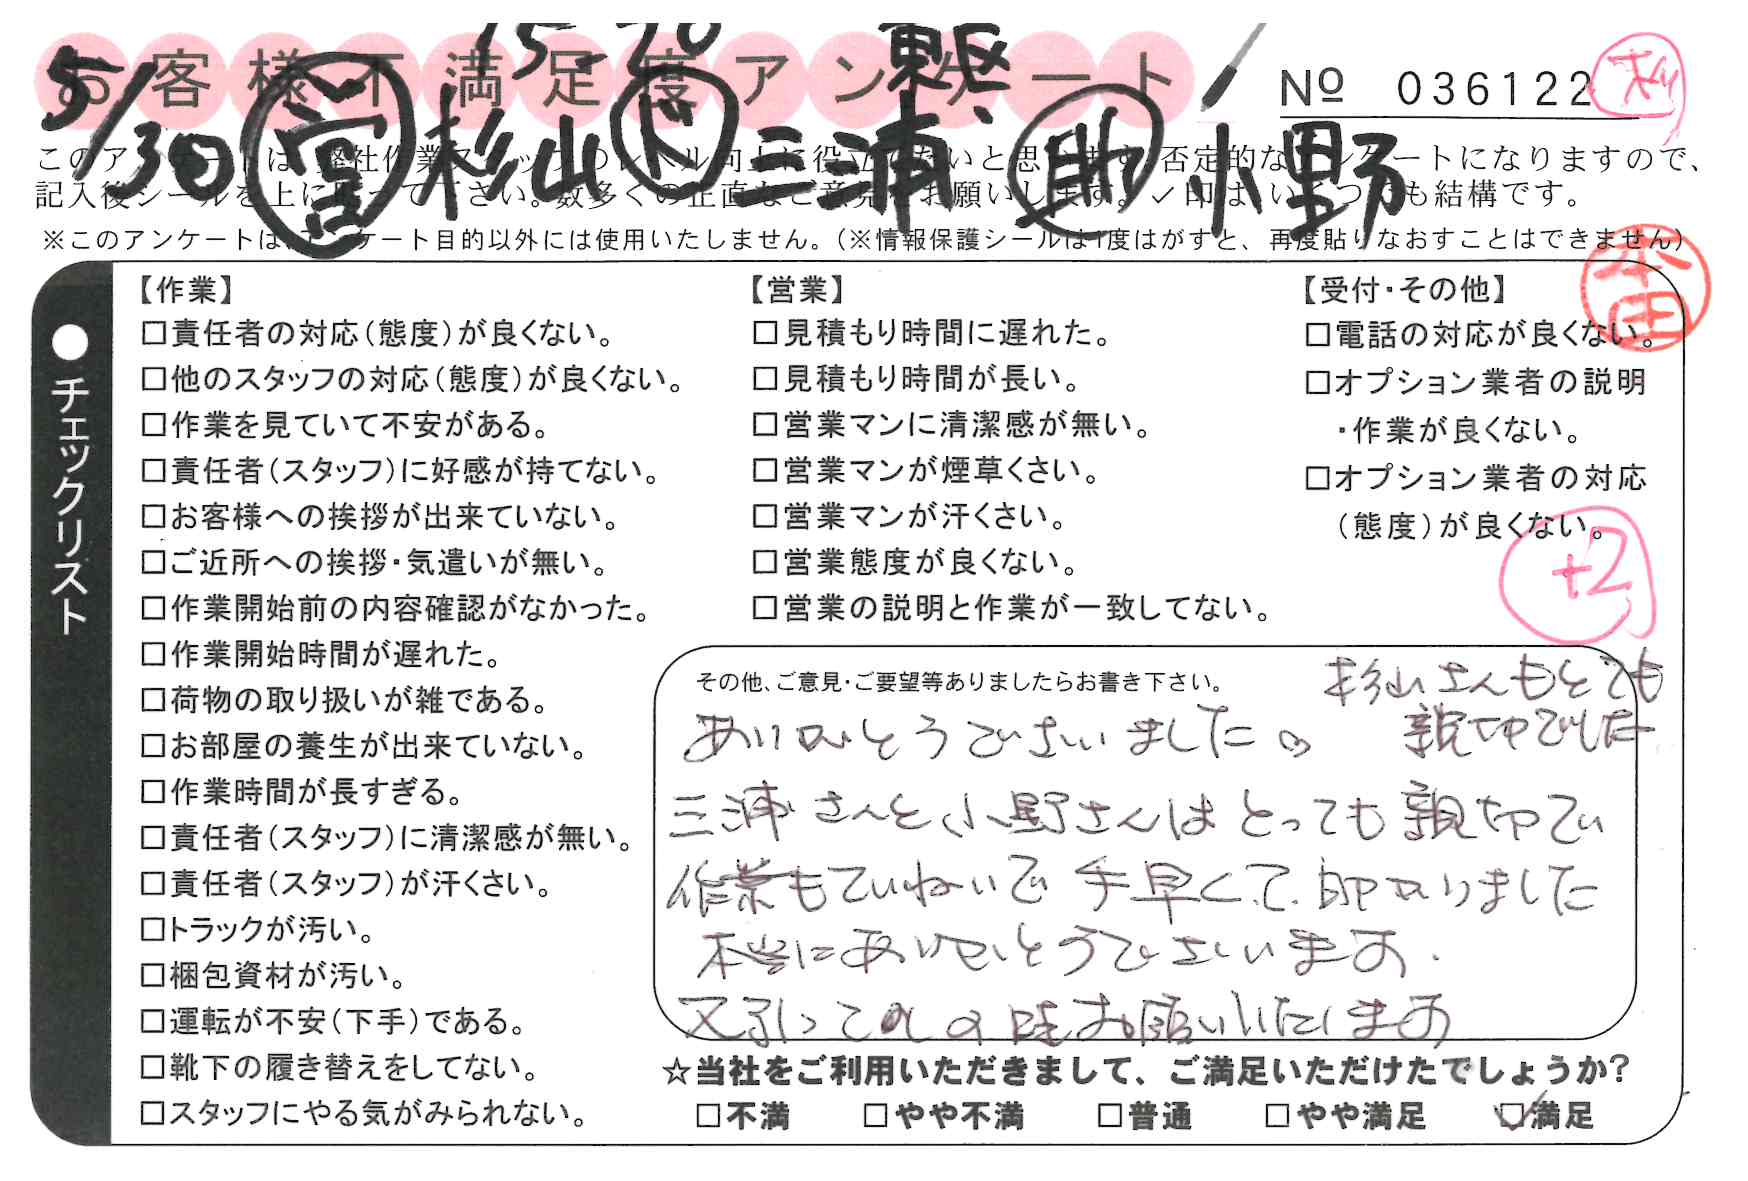 お客様不満足度アンケート
5/30 営 杉山 ド 三浦 助 小野
№ 036122
このアンケートは、弊社作業スタッフのレベル向上に役立てたいと思います。否定的なアンケートになりますので、
記入後シールを上に貼って下さい。数多くの正直なご意見をお願いします。✓印は、いくつでも結構です。
※このアンケートは、アンケート目的以外には使用いたしません。（※情報保護シールは1度はがすと、再度貼りなおすことはできません）
本田
●チェックリスト
【作業】
□責任者の対応（態度）が良くない。
□他のスタッフの対応（態度）が良くない。
□作業を見ていて不安がある。
□責任者（スタッフ）に好感が持てない。
□お客様への挨拶が出来ていない。
□ご近所への挨拶・気遣いが無い。
□作業開始前の内容確認がなかった。
□作業開始時間が遅れた。
□荷物の取り扱いが雑である。
□お部屋の養生が出来ていない。
□作業時間が長すぎる。
□責任者（スタッフ）に清潔感が無い。
□責任者（スタッフ）が汗くさい。
□トラックが汚い。
□梱包資材が汚い。
□運転が不安（下手）である。
□靴下の履き替えをしてない。
□スタッフにやる気がみられない。
【営業】
□見積もり時間に遅れた。
□見積もり時間が長い。
□営業マンに清潔感が無い。
□営業マンが煙草くさい。
□営業マンが汗くさい。
□営業態度が良くない。
□営業の説明と作業が一致してない。
【受付・その他】
□電話の対応が良くない。
□オプション業者の説明
・作業が良くない。
□オプション業者の対応
（態度）が良くない。
+2
その他、ご意見・ご要望等ありましたらお書き下さい。
杉山さんもとても
親切でした
ありがとうございました。
三浦さんと小野さんはとっても親切でい
作業もていねいで手早くて、助かりました
本当にありがとうございます.
又引っこしの時お願いいたします
☆当社をご利用いただきまして、ご満足いただけたでしょうか?
□不満 □やや不満 □普通 □やや満足 ☑満足